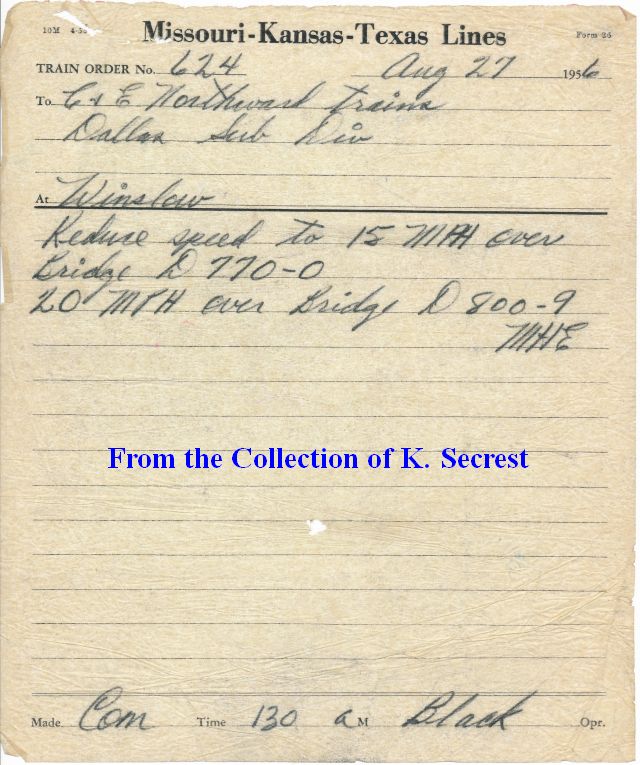 10M 4-56
Missouri-Kansas-Texas Lines
Form 26
TRAIN ORDER No. 624 Aug 27 1956
To C & E Northward trains
Dallas Sub Div
At Winslow
Reduce speed to 15 MPH over
Bridge D 770-0
20 MPH over Bridge D 800-9
MHE
From the Collection of K. Secrest
Made Com Time 130 a M Black Opr.